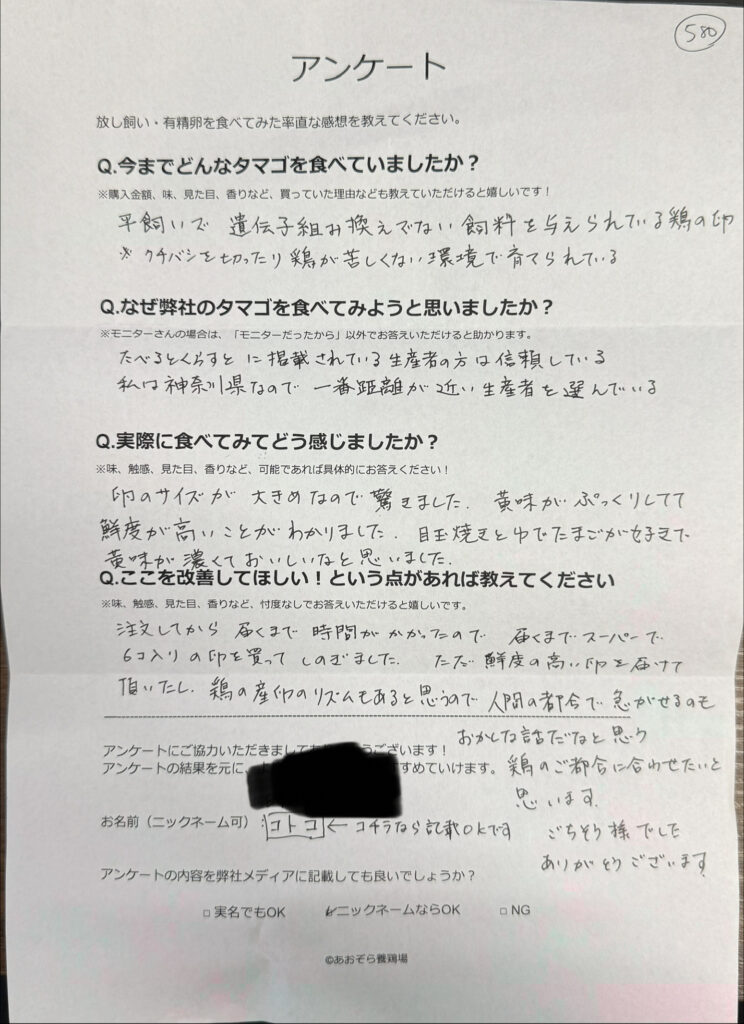 580
アンケート
放し飼い・有精卵を食べてみた率直な感想を教えてください。
Q.今までどんなタマゴを食べていましたか？
※購入金額、味、見た目、香りなど、買っていた理由なども教えていただけると嬉しいです！
平飼いで 遺伝子組み換えでない飼料を与えられている鶏の卵
※クチバシを切ったり鶏が苦しくない環境で育てられている
Q.なぜ弊社のタマゴを食べてみようと思いましたか？
※モニターさんの場合は、「モニターだったから」以外でお答えいただけると助かります。
たべるとくらすと に掲載されている生産者の方は信頼している
私は神奈川県なので 一番距離が近い生産者を選んでいる
Q.実際に食べてみてどう感じましたか？
※味、触感、見た目、香りなど、可能であれば具体的にお答えください！
卵のサイズが 大きめなので驚きました. 黄味がぷっくりしてて
鮮度が高いことがわかりました. 目玉焼きとゆでたまごが好きで
黄味が濃くておいしいなと思いました.
Q.ここを改善してほしい！という点があれば教えてください
※味、触感、見た目、香りなど、忖度なしでお答えいただけると嬉しいです。
注文してから 届くまで 時間がかかったので 届くまでスーパーで
6コ入りの卵を買って しのぎました. ただ 鮮度の高い卵を届けて
頂いたし、鶏の産卵のリズムもあると思うので 人間の都合で急がせるのも
おかしな話だなと思う
鶏のご都合に合わせたいと
思います.
ごちそう様でした
ありがとうございます.
アンケートにご協力いただきまして うございます！
アンケートの結果を元に、 すすめていけます。
お名前（ニックネーム可）：コトコ ← コチラなら記載OKです
アンケートの内容を弊社メディアに記載しても良いでしょうか？
□ 実名でもOK ✓ニックネームならOK □ NG
©あおぞら養鶏場